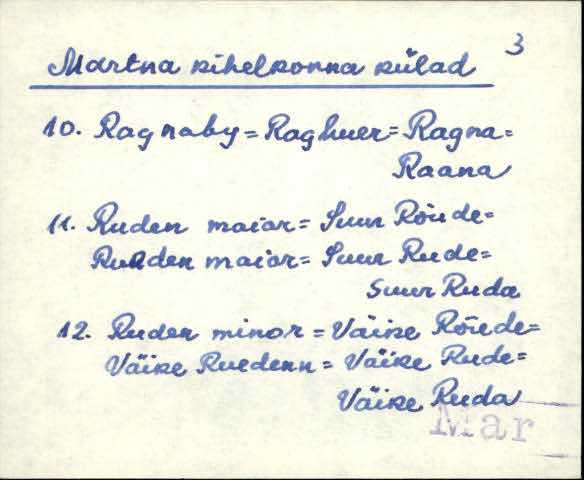 3
Martna kihelkonna külad
10. Ragnaby = Raghuer = Ragna =
Raana
11. Ruden maior = Suur Rõude =
Rueden maior = Suur Rude =
Suur Ruda
12. Ruden minor = Väike Rõude =
Väike Ruedenn = Väike Rude =
Väike Ruda
Mar